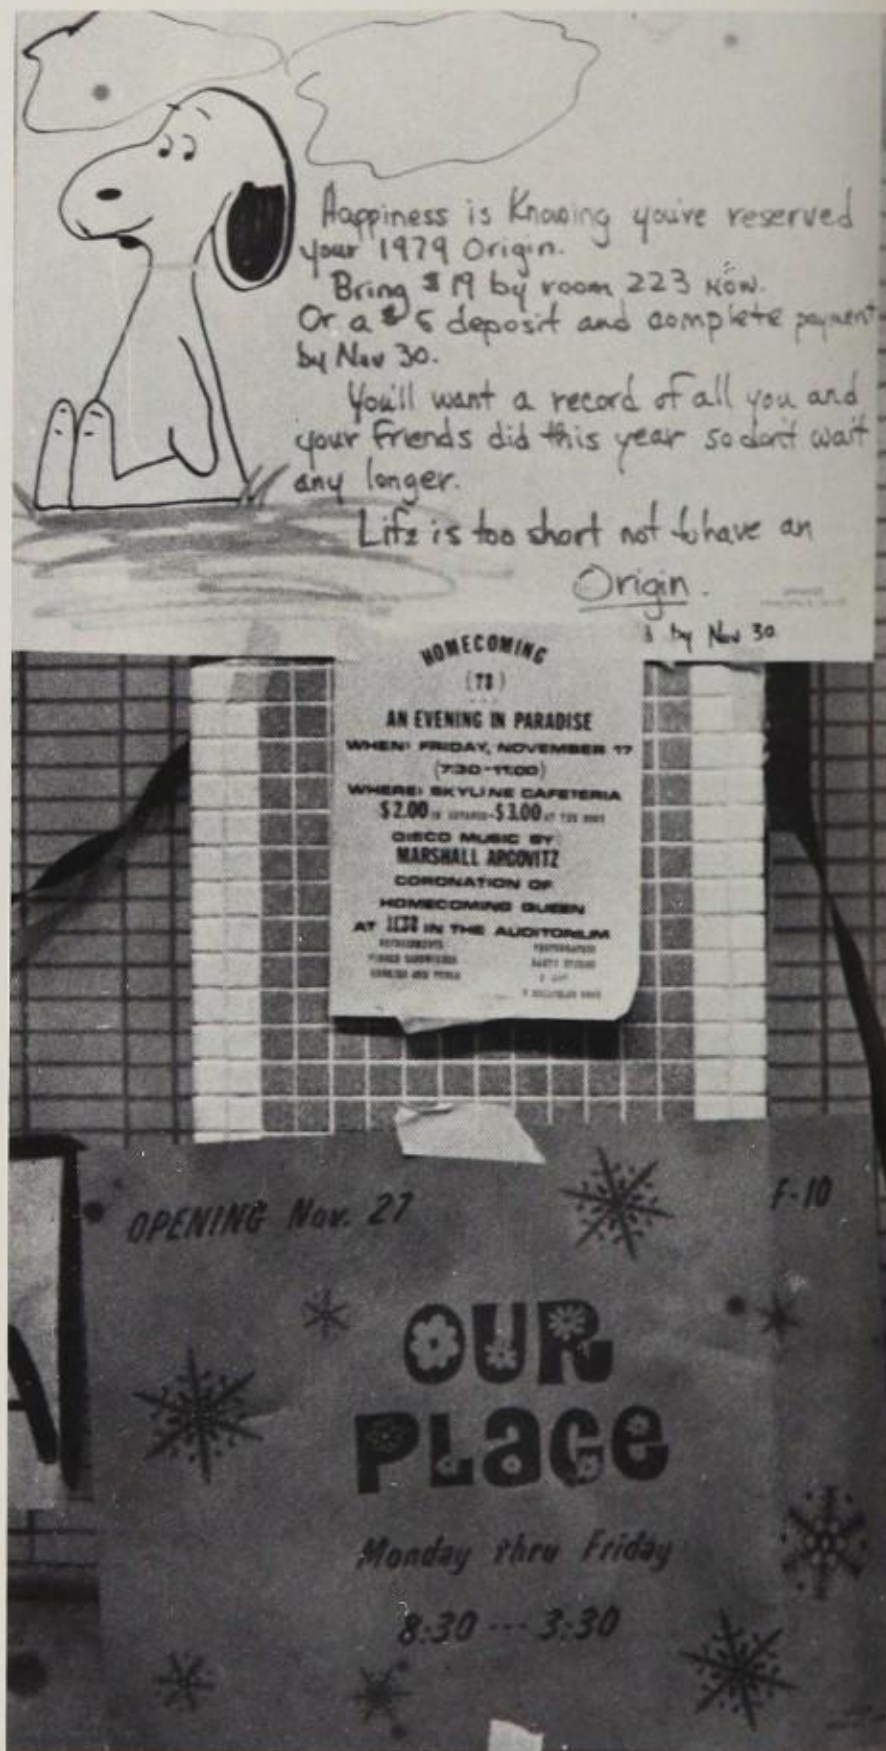 Happiness is Knowing you've reserved
your 1979 Origin.
Bring $19 by room 223 NOW.
Or a $5 deposit and complete payment
by Nov 30.
You'll want a record of all you and
your friends did this year so don't wait
any longer.
Life is too short not to have an
Origin.
by Nov 30
HOMECOMING
(78)
AN EVENING IN PARADISE
WHEN: FRIDAY, NOVEMBER 17
(7:30-11:00)
WHERE: SKYLINE CAFETERIA
$2.00 IN ADVANCE-$3.00 AT THE DOOR
DISCO MUSIC BY
MARSHALL ARCOVITZ
CORONATION OF
HOMECOMING QUEEN
AT IN THE AUDITORIUM
REFRESHMENTS
OPENING Nov. 27
F-10
OUR
PLACE
Monday thru Friday
8:30 --- 3:30
A